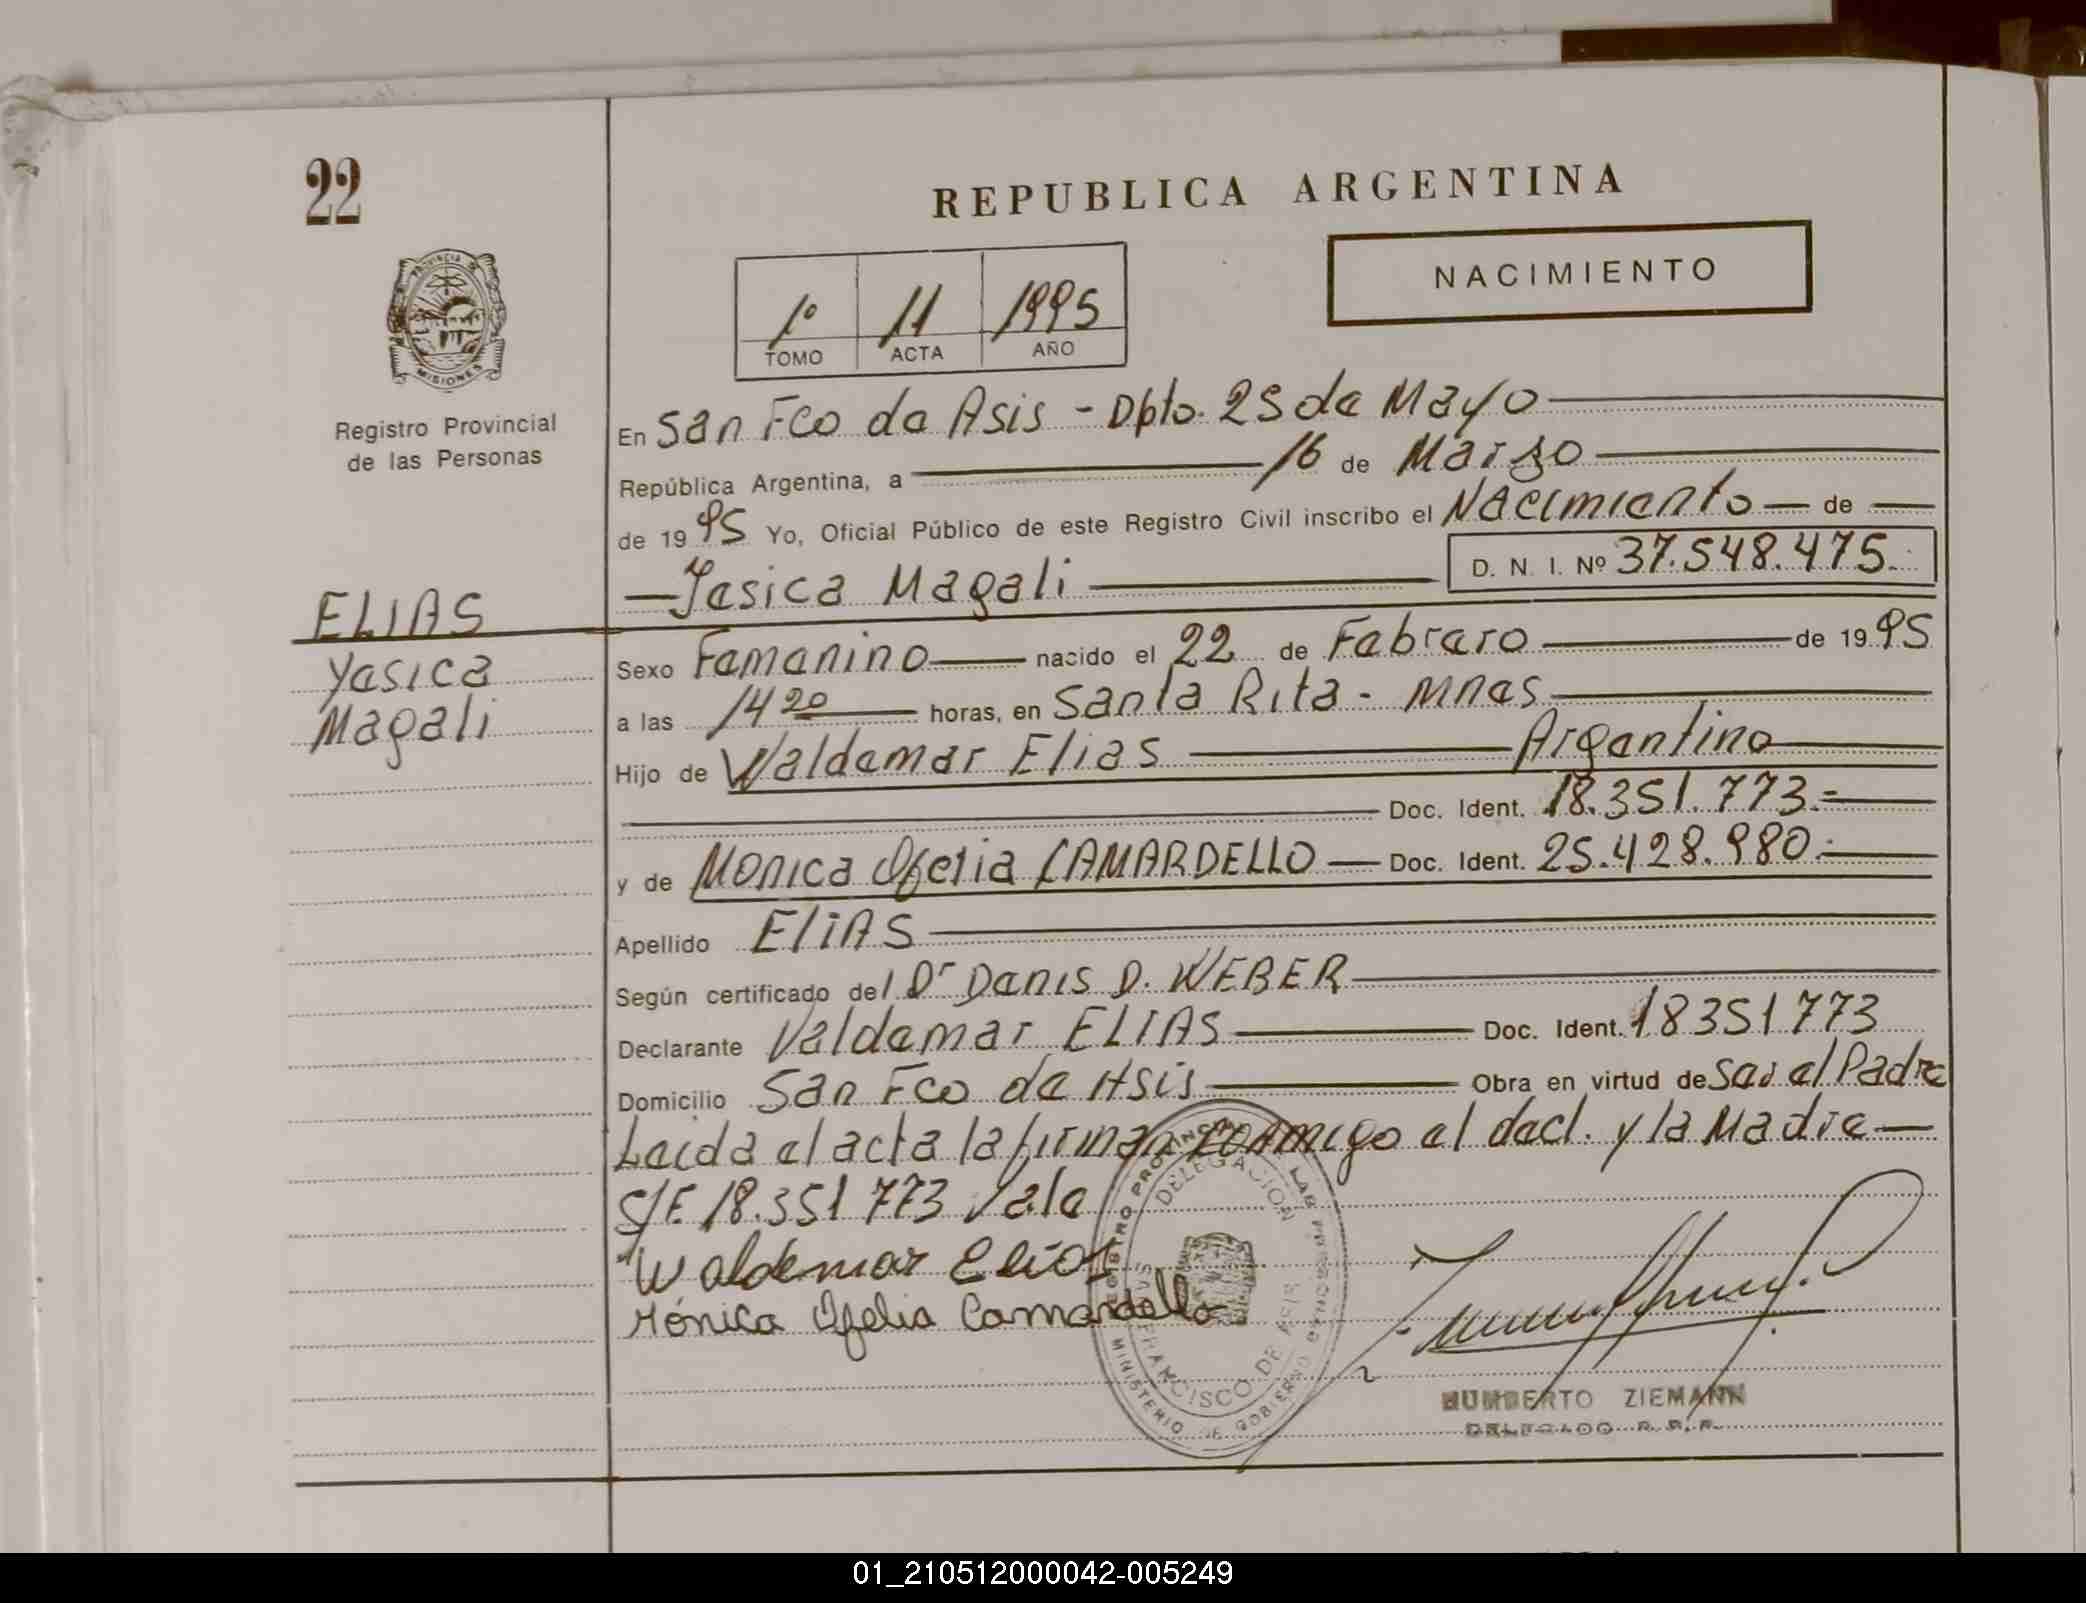 22
REPUBLICA ARGENTINA
NACIMIENTO
1º 11 1995
TOMO ACTA AÑO
PROVINCIA DE
MISIONES
Registro Provincial
de las Personas
En San Fco de Asis - Dpto. 25 de Mayo
República Argentina, a 16 de Marzo
de 1995 Yo, Oficial Público de este Registro Civil inscribo el Nacimiento de
Yesica Magali D. N. I. Nº 37.548.475.
ELIAS
Yesica
Magali
Sexo Femenino nacido el 22 de Febrero de 1995
a las 14 20 horas, en Santa Rita - Mnes
Hijo de Waldemar Elias Argentino
Doc. Ident. 18.351.773.-
y de Monica Ofelia CAMARDELLO Doc. Ident. 25.428.980.-
Apellido ELIAS
Según certificado del Dr Denis D. WEBER
Declarante Valdemar ELIAS Doc. Ident. 18351773
Domicilio San Fco de Asis Obra en virtud de Ser el Padre
Leida el acta la firman conmigo el decl. y la Madre
S/E 18.351 773 Vale
Waldemar Elias
Mónica Ofelia Camardello
REGISTRO PROVINCIAL DE LAS PERSONAS
DELEGACION
FRANCISCO DE ASIS
MINISTERIO DE GOBIERNO
HUMBERTO ZIEMANN
DELEGADO R. P. P.
01_210512000042-005249